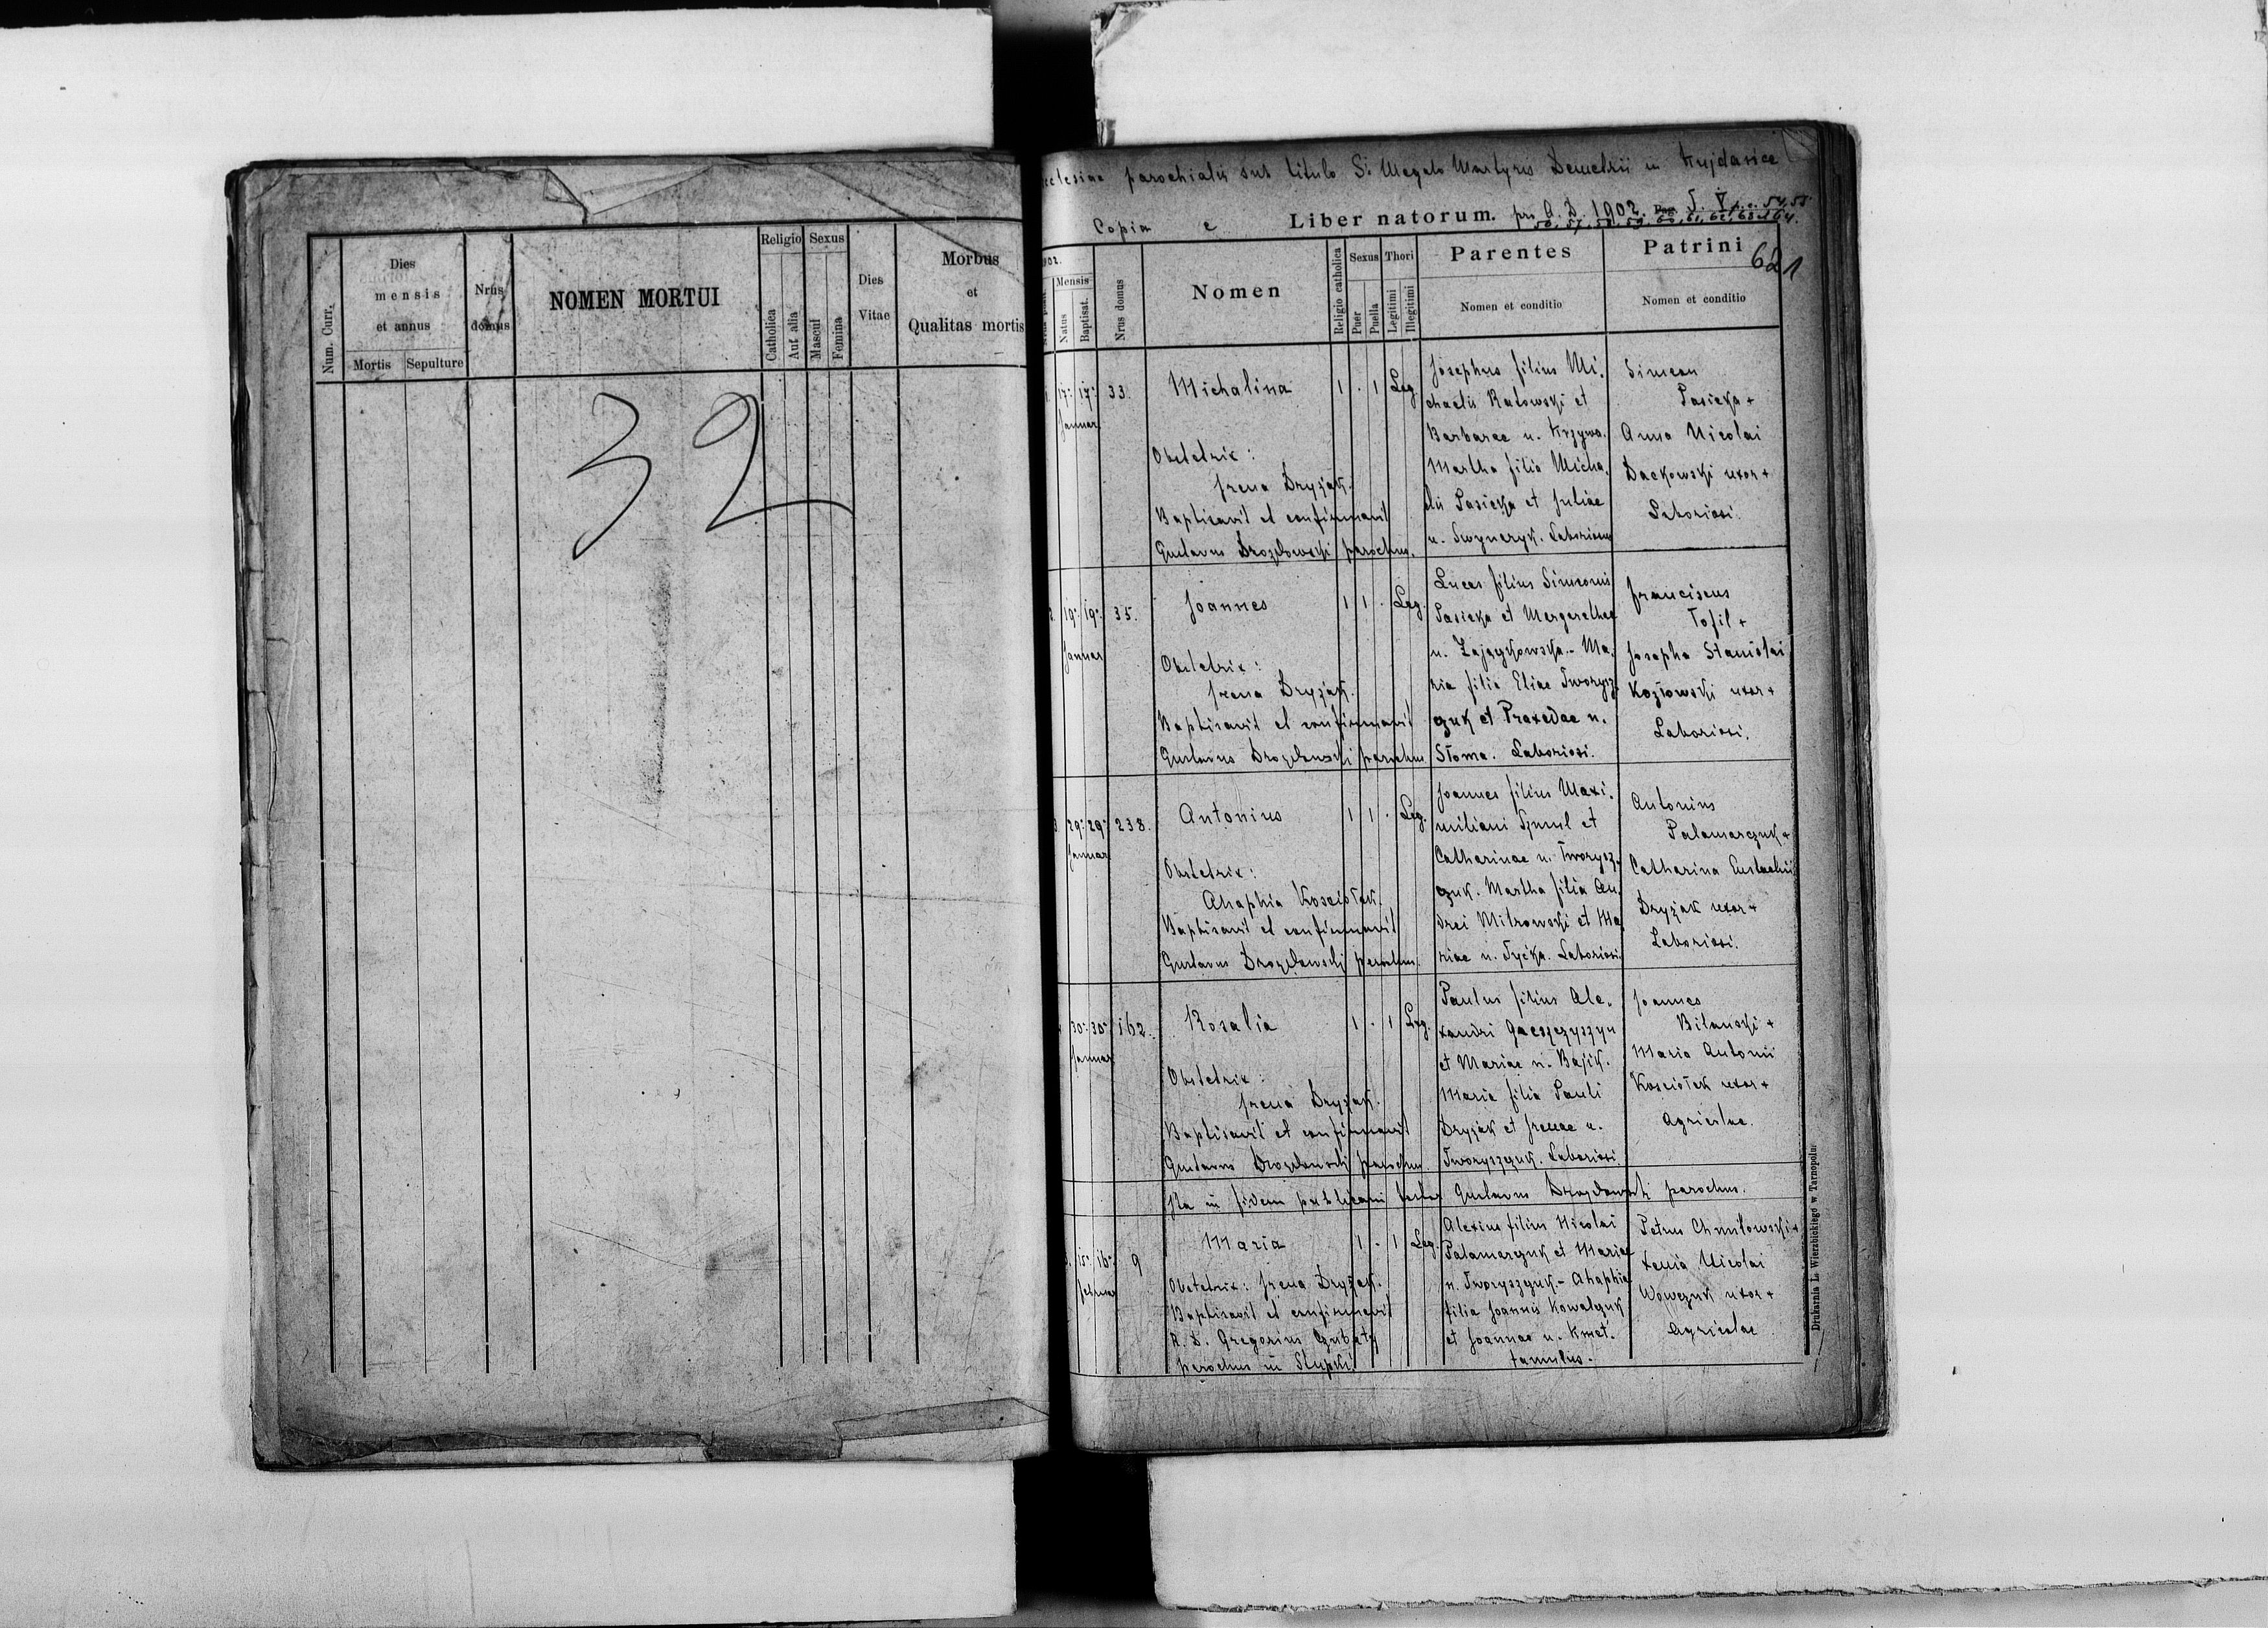 Num. Curr.
Dies
mensis
et annus
Mortis
Sepulture
Nrus
domus
NOMEN MORTUI
Religio
Catholica
Aut alia
Sexus
Mascul
Femina
Dies
Vitae
Morbus
et
Qualitas mortis
32
parochialis sub titulo S. Megalo Martyris Demetrii in Kujdasice
Copia e Liber natorum. pro A. D. 1902.
621
Mensis
Natus
Baptisat.
Nrus domus
Nomen
Religio catholica
Sexus
Puer
Puella
Thori
Legitimi
Illegitimi
Parentes
Nomen et conditio
Patrini
Nomen et conditio
17. 17. 33. Michalina 1 . 1 Leg.
Januar
Obstetrix:
Irena Dryjak.
Baptisavit et confirmavit
Gustavus Drozdowski parochus.
Josephus filius Mi-
chaelis Rutowski et
Barbarae n. Krzywa.
Martha filia Micha-
elis Pasieka et Juliae
n. Swyneryk. Laboriosi
Simeon
Pasieka +
Anna Nicolai
Dackowski uxor +
Laboriosi.
19. 19. 35. Joannes 1 1 . Leg.
Januar
Obstetrix:
Irena Dryjak.
Baptisavit et confirmavit
Gustavus Drozdowski parochus.
Lucas filius Simeonis
Pasieka et Margarethae
n. Zajączkowska.- Ma-
ria filia Eliae Tworysz-
czuk et Praxedae n.
Słoma. Laboriosi.
Franciscus
Tofil +
Josepha Stanislai
Kozłowski uxor +
Laboriosi.
29. 29. 238. Antonius 1 1 . Leg.
Januar
Obstetrix:
Ahaphia Kosciołek.
Baptisavit et confirmavit
Gustavus Drozdowski parochus.
Joannes filius Maxi-
miliani Szmul et
Catharinae n. Tworysz-
czuk. Martha filia An-
drei Mitrowski et Ma-
riae n. Tyćka. Laboriosi.
Antonius
Palamarczuk +
Catharina Eustachii
Dryjak uxor +
Laboriosi.
30. 30. 162. Rosalia 1 . 1 Leg.
Januar
Obstetrix:
Irena Dryjak.
Baptisavit et confirmavit
Gustavus Drozdowski parochus.
Paulus filius Ale-
xandri
et Mariae n. Bajik.
Maria filia Pauli
Dryjak et Irenae n.
Tworyszczuk. Laboriosi.
Joannes
Bilanski +
Maria Antonii
Kosciołek uxor +
Agricolae.
Ita in fidem publicam testor Gustavus Drozdowski parochus.
15. 16. 9 Maria 1 - 1 Leg.
Februar
Obstetrix: Irena Dryjak.
Baptisavit et confirmavit
R. D. Gregorius Czubaty
parochus in Slupki.
Alexius filius Nicolai
Palamarczuk et Mariae
n. Tworyszczuk.- Ahaphia
filia Joannis Kowalczuk
et Joannae n. Kmet.
famulus.
Petrus Chmiłowski +
Xenia Nicolai
Wowczuk uxor +
Agricolae
Drukarnia L. Wierzbickiego w Tarnopolu.